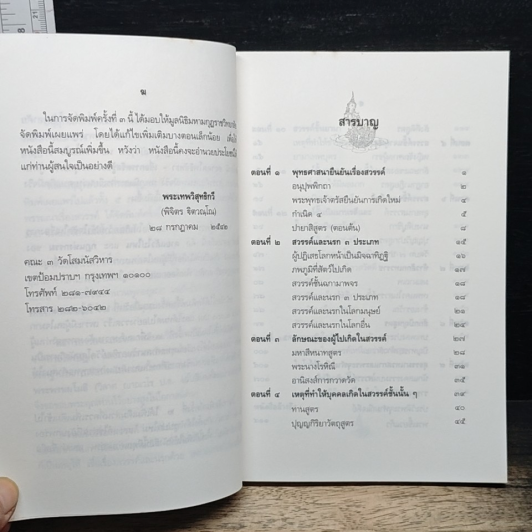 ฆ
ในการจัดพิมพ์ครั้งที่ ๓ นี้ ได้มอบให้มูลนิธิมหามกุฏราชวิทยาลัย
จัดพิมพ์เผยแพร่ โดยได้แก้ไขเพิ่มเติมบางตอนเล็กน้อย เพื่อ
หนังสือนี้สมบูรณ์เพิ่มขึ้น หวังว่า หนังสือนี้คงจะอำนวยประโยชน์
แก่ท่านผู้สนใจเป็นอย่างดี
พระเทพวิสุทธิกวี
(พิจิตร ฐิตวณฺโณ)
๒๘ กรกฎาคม ๒๕๔๒
คณะ ๓ วัดโสมนัสวิหาร
เขตป้อมปราบฯ กรุงเทพฯ ๑๐๑๐๐
โทรศัพท์ ๒๘๑-๗๙๔๔
โทรสาร ๒๘๒-๖๐๔๒
สารบาญ
ตอนที่ ๑ พุทธศาสนายืนยันเรื่องสวรรค์ ๑
อนุปุพพิกถา ๒
พระพุทธเจ้าตรัสยืนยันการเกิดใหม่ ๔
กำเนิด ๔ ๕
ปายาสิสูตร (ตอนต้น) ๘
ตอนที่ ๒ สวรรค์และนรก ๓ ประเภท ๑๕
ผู้ปฏิเสธโลกหน้าเป็นมิจฉาทิฏฐิ ๑๖
ภพภูมิที่สัตว์ไปเกิด ๑๗
สวรรค์ชั้นกามาพจร ๑๘
สวรรค์และนรก ๓ ประเภท ๑๘
สวรรค์และนรกในโลกมนุษย์ ๒๑
สวรรค์และนรกในโลกอื่น ๒๔
ตอนที่ ๓ ลักษณะของผู้ไปเกิดในสวรรค์ ๒๗
มหาสีหนาทสูตร ๒๘
พระนางโรหิณี ๓๑
อานิสงส์การกวาดวัด ๓๕
ตอนที่ ๔ เหตุที่ทำให้บุคคลเกิดในสวรรค์ชั้นนั้น ๆ ๓๙
ทานสูตร ๔๐
ปุญญกิริยาวัตถุสูตร ๔๕